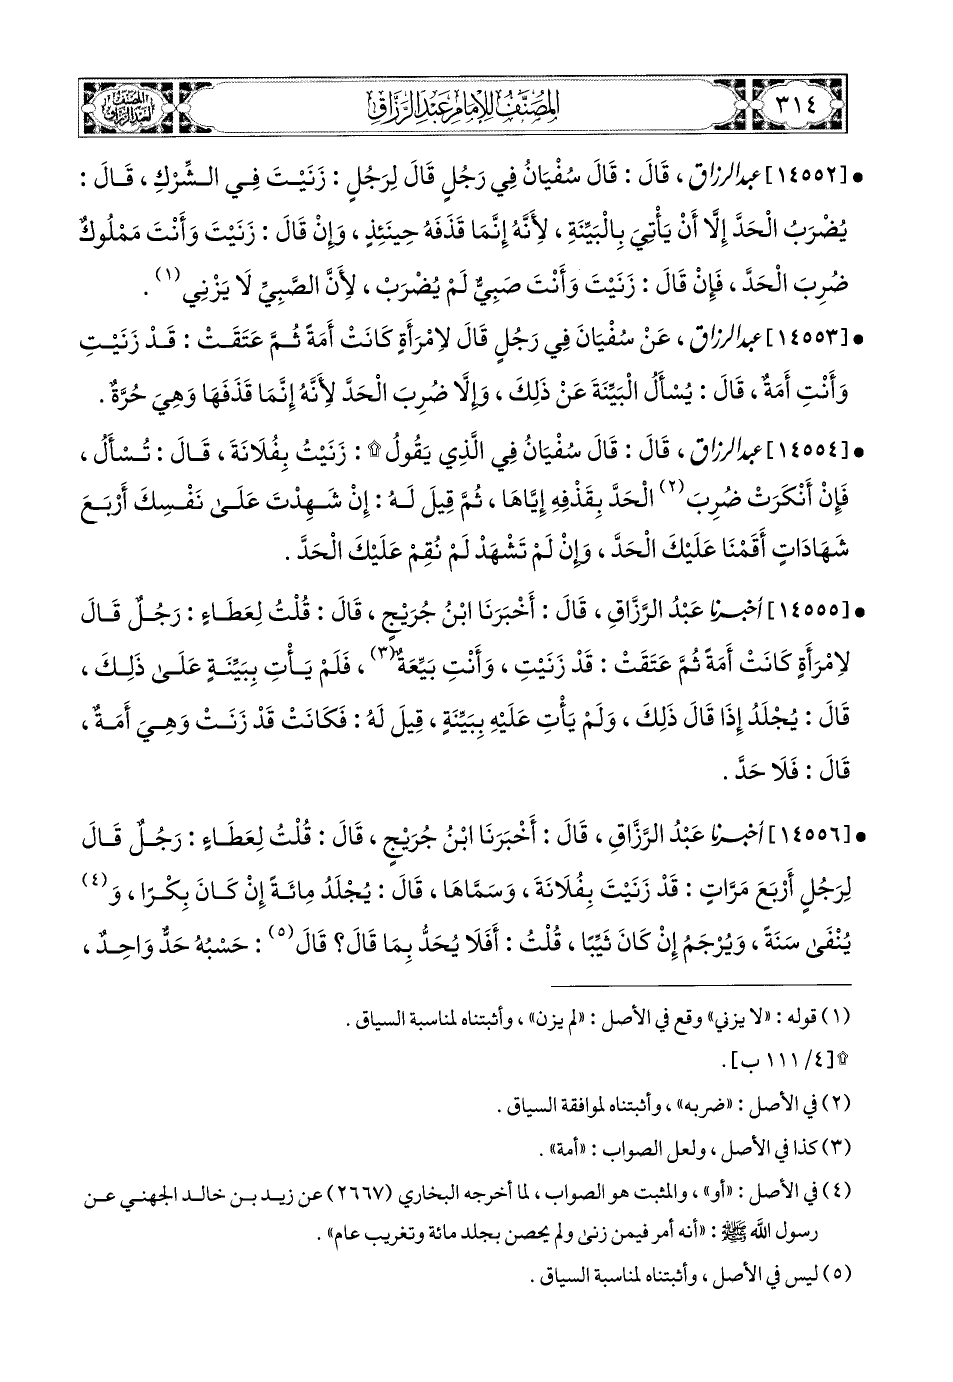 ٣١٤
المصنف للإمام عبد الرزاق
المصنف لعبد الرزاق
• [١٤٥٥٢] عبد الرزاق، قَالَ: قَالَ سُفْيَانُ فِي رَجُلٍ قَالَ لِرَجُلٍ: زَنَيْتَ فِي الشِّرْكِ، قَالَ:
يُضْرَبُ الْحَدَّ إِلَّا أَنْ يَأْتِيَ بِالْبَيِّنَةِ، لِأَنَّهُ إِنَّمَا قَذَفَهُ حِينَئِذٍ، وَإِنْ قَالَ: زَنَيْتَ وَأَنْتَ مَمْلُوكٌ
ضُرِبَ الْحَدَّ، فَإِنْ قَالَ: زَنَيْتَ وَأَنْتَ صَبِيٌّ لَمْ يُضْرَبْ، لِأَنَّ الصَّبِيَّ لَا يَزْنِي(١).
• [١٤٥٥٣] عبد الرزاق، عَنْ سُفْيَانَ فِي رَجُلٍ قَالَ لِامْرَأَةٍ كَانَتْ أَمَةً ثُمَّ عَتَقَتْ: قَدْ زَنَيْتِ
وَأَنْتِ أَمَةٌ، قَالَ: يُسْأَلُ الْبَيِّنَةَ عَنْ ذَلِكَ، وَإِلَّا ضُرِبَ الْحَدَّ لِأَنَّهُ إِنَّمَا قَذَفَهَا وَهِيَ حُرَّةٌ.
• [١٤٥٥٤] عبد الرزاق، قَالَ: قَالَ سُفْيَانُ فِي الَّذِي يَقُولُ ۩: زَنَيْتُ بِفُلَانَةَ، قَالَ: تُسْأَلُ،
فَإِنْ أَنْكَرَتْ ضُرِبَ(٢) الْحَدَّ بِقَذْفِهِ إِيَّاهَا، ثُمَّ قِيلَ لَهُ: إِنْ شَهِدْتَ عَلَى نَفْسِكَ أَرْبَعَ
شَهَادَاتٍ أَقَمْنَا عَلَيْكَ الْحَدَّ، وَإِنْ لَمْ تَشْهَدْ لَمْ نُقِمْ عَلَيْكَ الْحَدَّ.
• [١٤٥٥٥] أخبرنا عَبْدُ الرَّزَّاقِ، قَالَ: أَخْبَرَنَا ابْنُ جُرَيْجٍ، قَالَ: قُلْتُ لِعَطَاءٍ: رَجُلٌ قَالَ
لِامْرَأَةٍ كَانَتْ أَمَةً ثُمَّ عَتَقَتْ: قَدْ زَنَيْتِ، وَأَنْتِ بَيِّعَةٌ(٣)، فَلَمْ يَأْتِ بِبَيِّنَةٍ عَلَى ذَلِكَ،
قَالَ: يُجْلَدُ إِذَا قَالَ ذَلِكَ، وَلَمْ يَأْتِ عَلَيْهِ بِبَيِّنَةٍ، قِيلَ لَهُ: فَكَانَتْ قَدْ زَنَتْ وَهِيَ أَمَةٌ،
قَالَ: فَلَا حَدَّ.
• [١٤٥٥٦] أخبرنا عَبْدُ الرَّزَّاقِ، قَالَ: أَخْبَرَنَا ابْنُ جُرَيْجٍ، قَالَ: قُلْتُ لِعَطَاءٍ: رَجُلٌ قَالَ
لِرَجُلٍ أَرْبَعَ مَرَّاتٍ: قَدْ زَنَيْتَ بِفُلَانَةَ، وَسَمَّاهَا، قَالَ: يُجْلَدُ مِائَةً إِنْ كَانَ بِكْرًا، وَ(٤)
يُنْفَى سَنَةً، وَيُرْجَمُ إِنْ كَانَ ثَيِّبًا، قُلْتُ: أَفَلَا يُحَدُّ بِمَا قَالَ؟ قَالَ(٥): حَسْبُهُ حَدٌّ وَاحِدٌ،
(١) قوله: «لا يزني» وقع في الأصل: «لم يزن»، وأثبتناه لمناسبة السياق.
۩ [٤/ ١١١ ب].
(٢) في الأصل: «ضربه»، وأثبتناه لموافقة السياق.
(٣) كذا في الأصل، ولعل الصواب: «أمة».
(٤) في الأصل: «أو»، والمثبت هو الصواب، لما أخرجه البخاري (٢٦٦٧) عن زيد بن خالد الجهني عن
رسول الله ﷺ: «أنه أمر فيمن زنى ولم يحصن بجلد مائة وتغريب عام».
(٥) ليس في الأصل، وأثبتناه لمناسبة السياق.